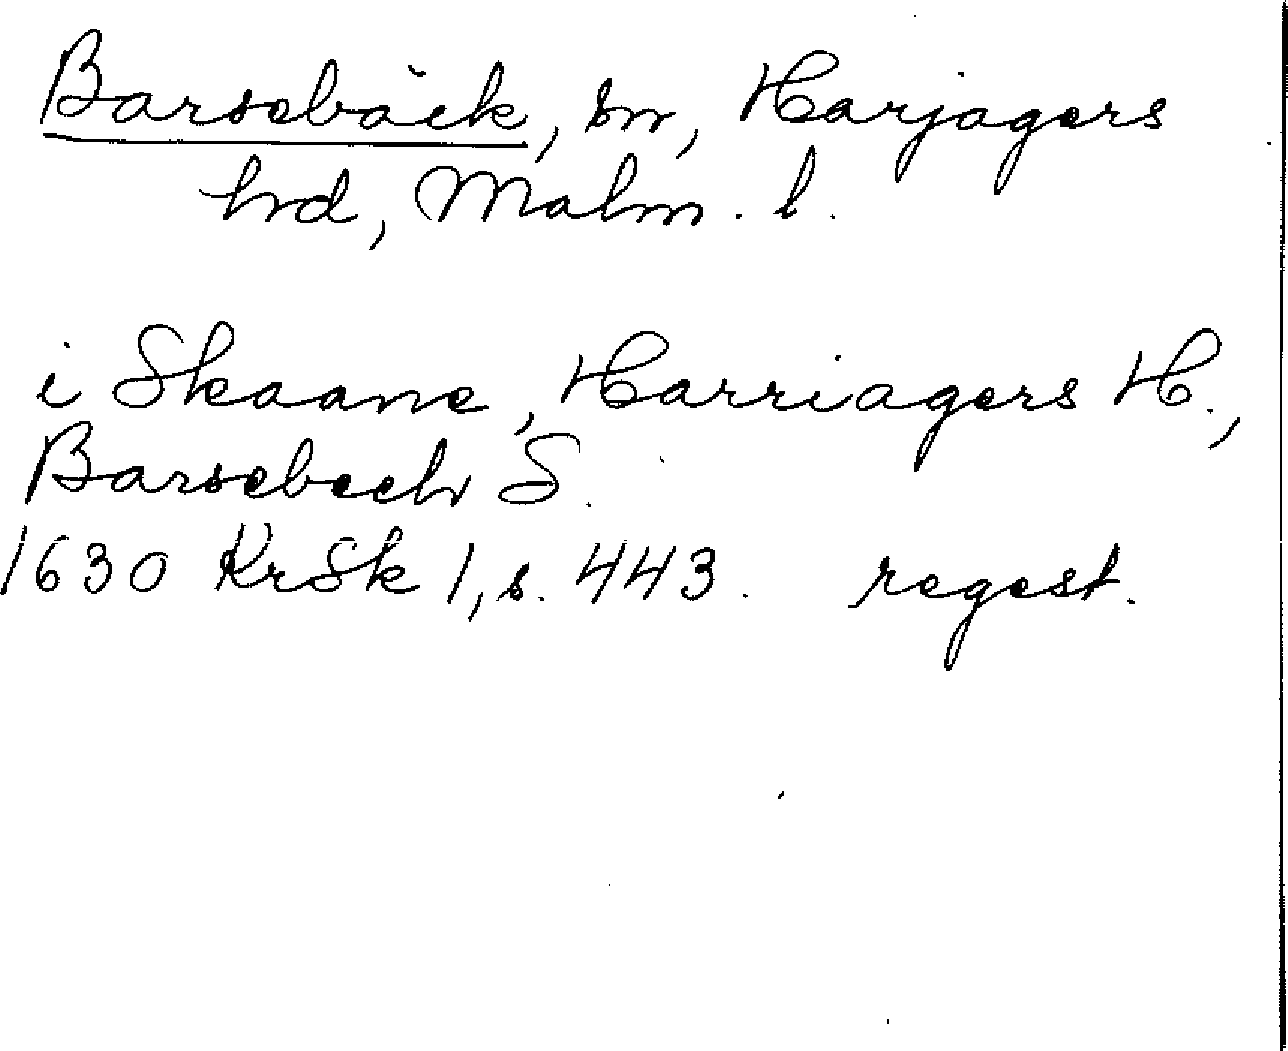 Barsebäck, sn, Harjagers
hrd, Malm. l.
i Skaane, Harriagers H.,
Barsebech S.
1630 KrSk 1, s. 443. regest.